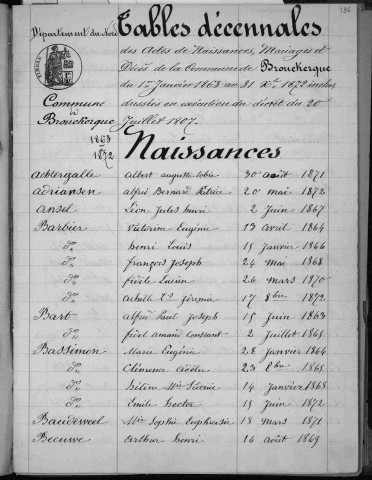 186
Département du Nord
Tables décennales
des Actes de Naissances, Mariages et
Décès de la Commune de Brouckerque
du 1er Janvier 1863 au 31 Xbre 1872 inclus
dressées en exécution du décret du 20
Juillet 1807.
Commune
de
Brouckerque
1863
1872
Naissances
albert auguste 30 août 1871
Adriansen alfred Bernard 20 mai 1872
Ansel Léon Jules henri 2 Juin 1867
Barbier Victorine Eugénie 13 avril 1864
do henri Louis 15 Janvier 1866
do françois Joseph 24 mai 1868
do fidèle Lucien 26 mars 1870
do achille Ls Jérémie 17 8bre 1872
Bart alfred Paul Joseph 15 Juin 1863
do fidel amand Constant 2 Juillet 1865
Bassimon Marie Eugénie 28 Janvier 1864
do Clémence adèle 23 8bre 1865
do hélène Mie 14 Janvier 1868
do Emile hector 15 Juin 1872
Baudeweel Mie Sophie Euphrasie 18 mars 1871
Becuwe arthur henri 16 août 1869